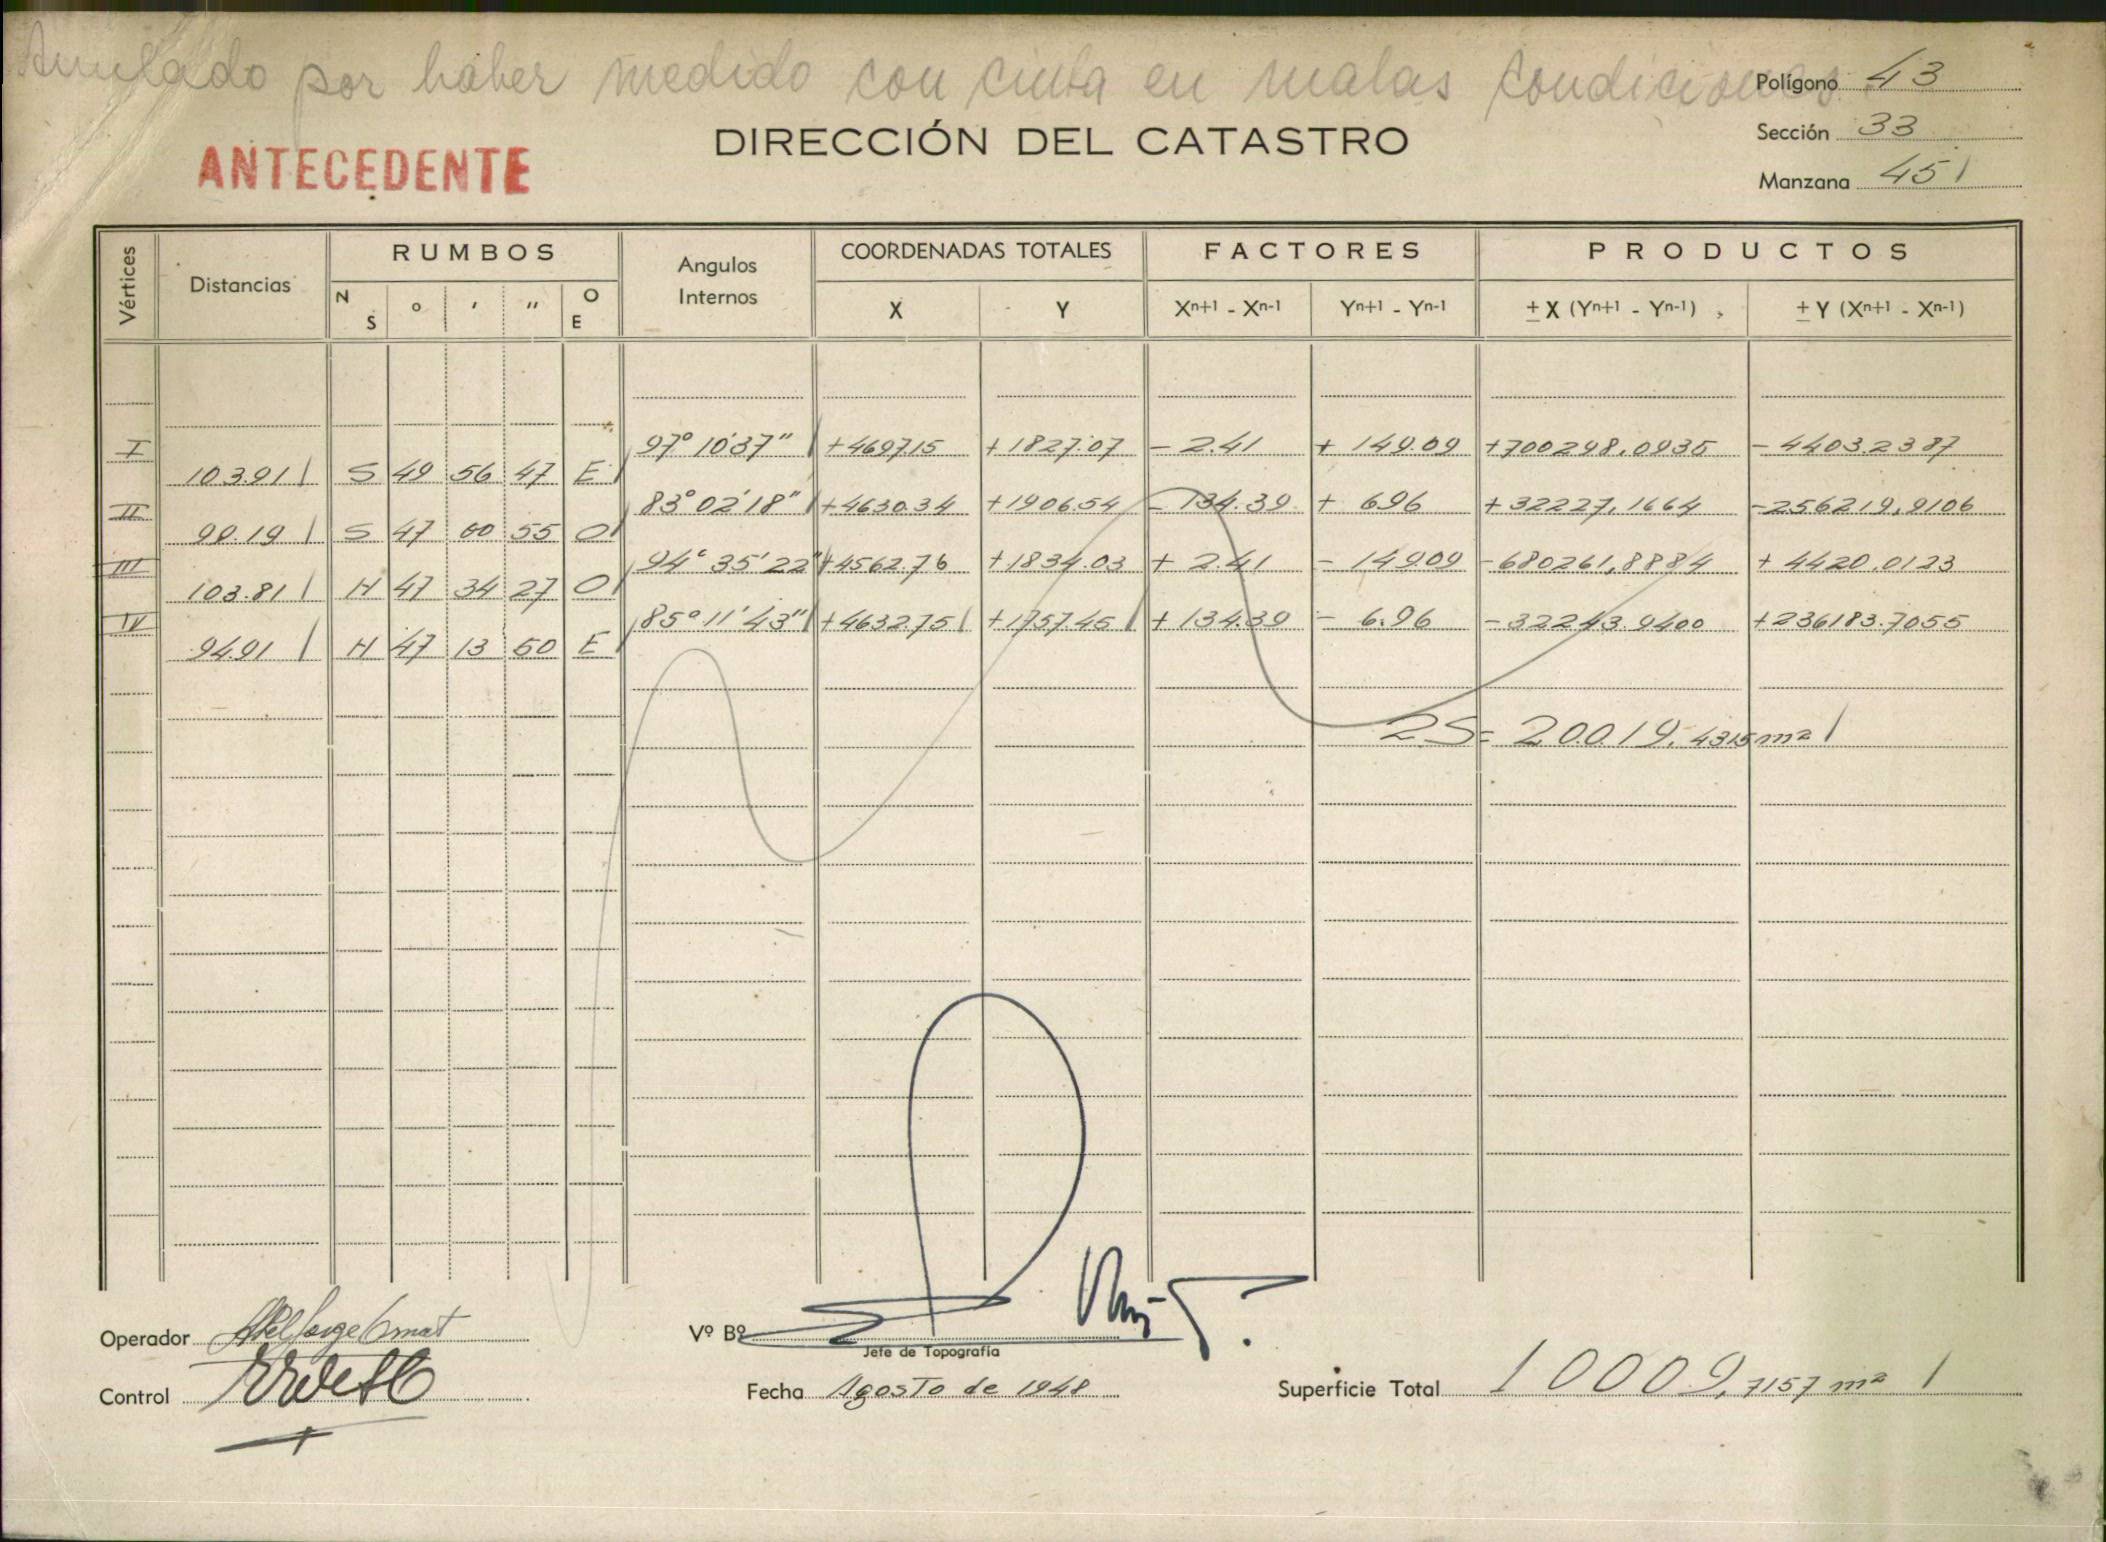 Anulado por haber medido con cinta en malas condiciones
Polígono 43
Sección 33
Manzana 451
DIRECCIÓN DEL CATASTRO
ANTECEDENTE
Vértices Distancias RUMBOS Angulos Internos COORDENADAS TOTALES FACTORES PRODUCTOS
N S ° ' " O E X Y Xn+1 - Xn-1 Yn+1 - Yn-1 ± X (Yn+1 - Yn-1) ± Y (Xn+1 - Xn-1)
I 97° 10' 37" +4697.15 +1827.07 - 2.41 + 149.09 +700298,0935 - 4403.2387
103.91 S 49 56 47 E
II 83° 02' 18" +4630.34 +1906.54 - 134.39 + 6.96 +32227,1664 -256219,9106
99.19 S 47 00 55 O
III 94° 35' 22" +4562.76 +1834.03 + 2.41 - 149.09 -680261,8884 + 4420.0123
103.81 N 47 34 27 O
IV 85° 11' 43" +4632.75 +1757.45 + 134.39 - 6.96 -32243.9400 +236183.7055
94.91 N 47 13 50 E
2S = 20.019,4315 m²
Operador
Control
Vº Bº
Jefe de Topografía
Fecha Agosto de 1948
Superficie Total 10009,7157 m²